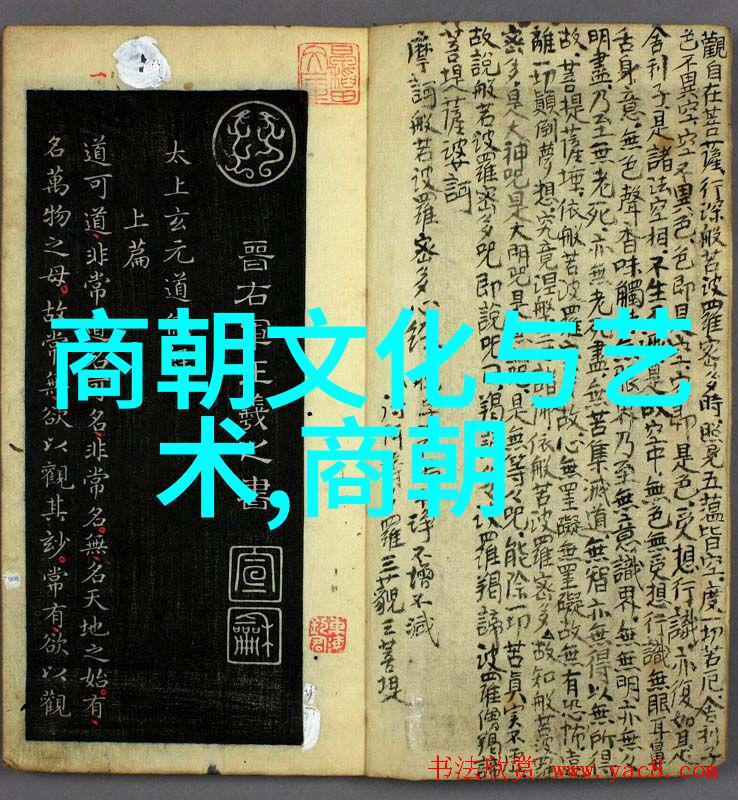 商朝文化与艺
术,商朝
觀自在菩薩行深般若波羅蜜多時照見五蘊皆空度一切苦厄舍利子
色不異空空不異色色即是空空即是色受想行識亦復如是
舍利子是諸法空相不生是故空中無色無受想行識無眼耳鼻
舌身意無色聲香味觸無眼界乃至無意識界無無明亦無
明盡乃至無老死亦無老盡無苦集滅道無智亦無得以無所得
故菩提薩埵依般若波羅故心無罣礙無罣礙故無有恐怖遠
離一切顛倒夢想究竟涅般三諸佛依般若波羅蜜多故知般若波
密多是大神咒是大明咒是是無等々咒能除一切苦真實不
故說般若波羅密多咒即說咒曰揭波羅揭諦波羅僧揭諦
菩提薩婆訶
摩訶般若波羅密多心經
淨不增不減
羅三藐三菩提
晉右軍王羲之書
宣
龢
太上玄元道
上篇
道可道非常道名可名非常名無名天地之始有
名萬物之母故常無欲以觀其妙常有欲以觀
书法欣赏 www.yac8.com